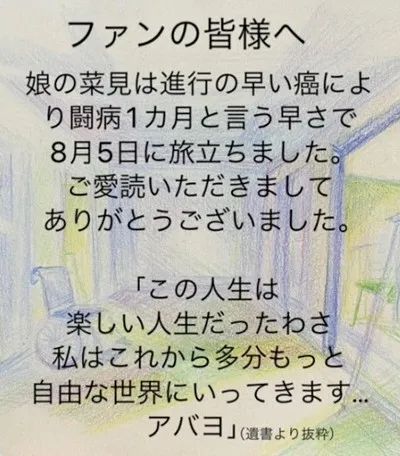 ファンの皆様へ
娘の菜見は進行の早い癌によ
り闘病1カ月と言う早さで
8月5日に旅立ちました。
ご愛読いただきまして
ありがとうございました。
「この人生は
楽しい人生だったわさ
私はこれから多分もっと
自由な世界にいってきます...
アバヨ」(遺書より抜粋)